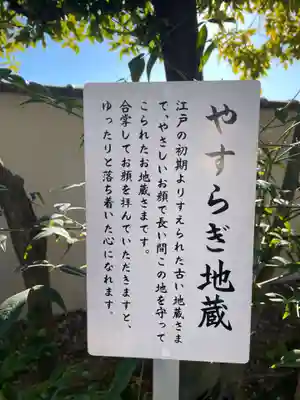 やすらぎ地蔵
江戸の初期よりすえられた古い地蔵さま
で、やさしいお顔で長い間この地を守って
こられたお地蔵さまです。
合掌してお顔を拝んでいただきますと、
ゆったりと落ち着いた心になれます。